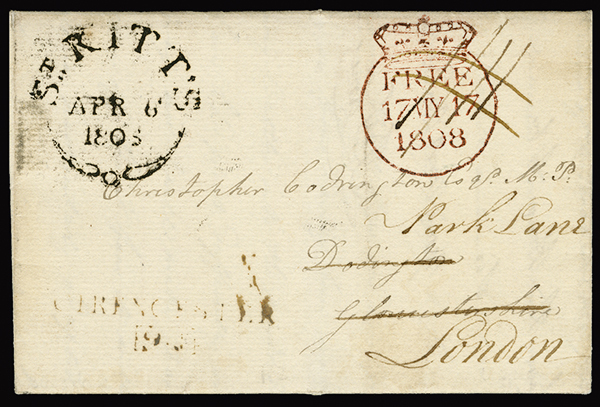 St. KITT'S
APR 6
1808
FREE
17 MY 17
1808
Christopher Codrington Esqr. M.P.
Park Lane
Dodington
Gloucestershire
London
CIRENCESTER